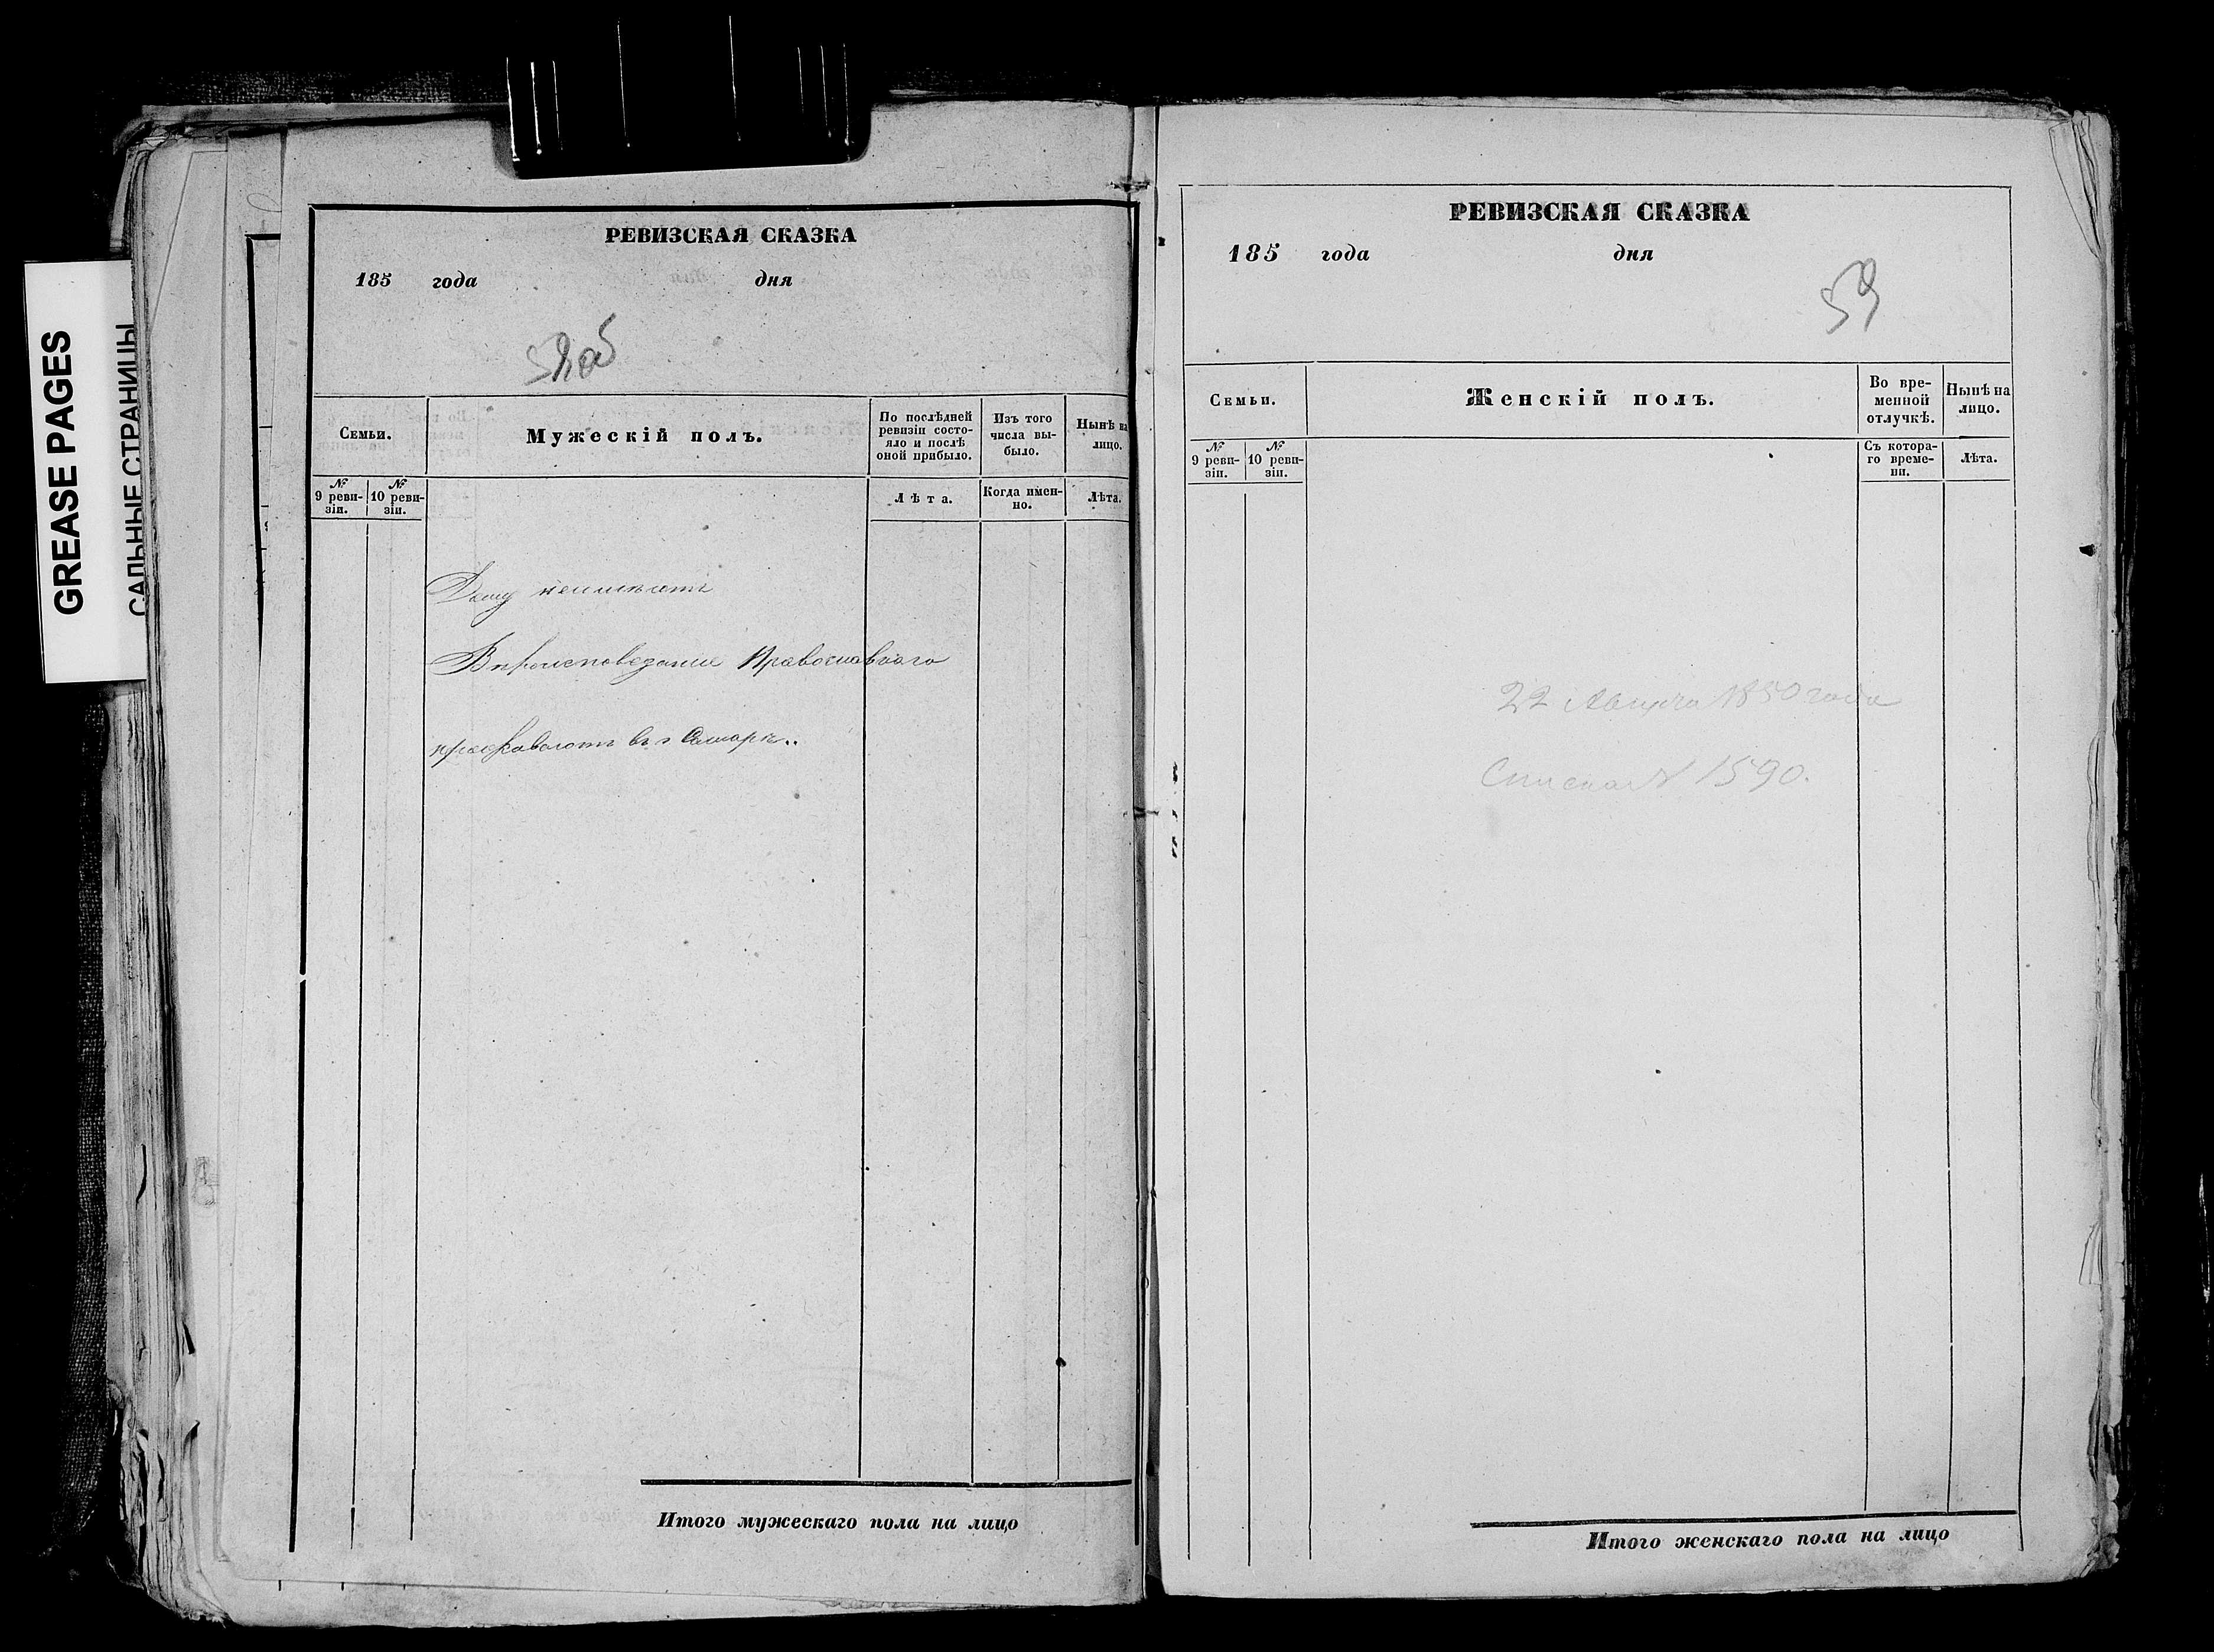 GREASE PAGES
САЛЬНЫЕ СТРАНИЦЫ
РЕВИЗСКАЯ СКАЗКА
185 года дня
58 об
Семьи.
Мужескій полъ.
По послѣдней
ревизіи состо-
яло и послѣ
оной прибыло.
Изъ того
числа вы-
было.
Нынѣ на
лицо.
№
9 реви-
зіи.
№
10 реви-
зіи.
Лѣта.
Когда имен-
но.
Лѣта.
Дому неимѣютъ
Вѣроисповедание Православнаго
проживаютъ въ г Самарѣ..
Итого мужескаго пола на лицо
РЕВИЗСКАЯ СКАЗКА
185 года дня
59
Семьи.
Женскій полъ.
Во вре-
менной
отлучкѣ.
Нынѣ на
лицо.
№
9 реви-
зіи.
№
10 реви-
зіи.
Съ котора-
го време-
ни.
Лѣта.
22 Августа 1850 года
Списка № 1590.
Итого женскаго пола на лицо